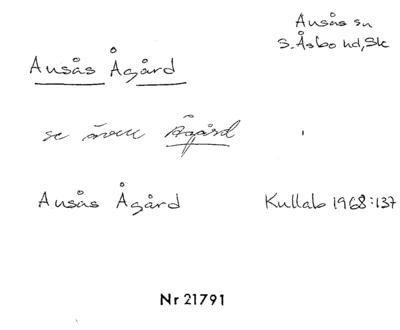 Ausås sn
S. Åsbo hd, Sk
Ausås Ågård
se även Ågård
Ausås Ågård Kullab 1968:137
Nr 21791